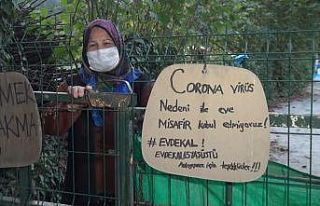 MEK
AKMA
CORONA VİRÜS
Nedeni ile eve
MİSAFİR kabul etmiyoruz!
# EVDEKAL!
EVDEKALİSTASÜSTÜ
için teşekkürler!!!